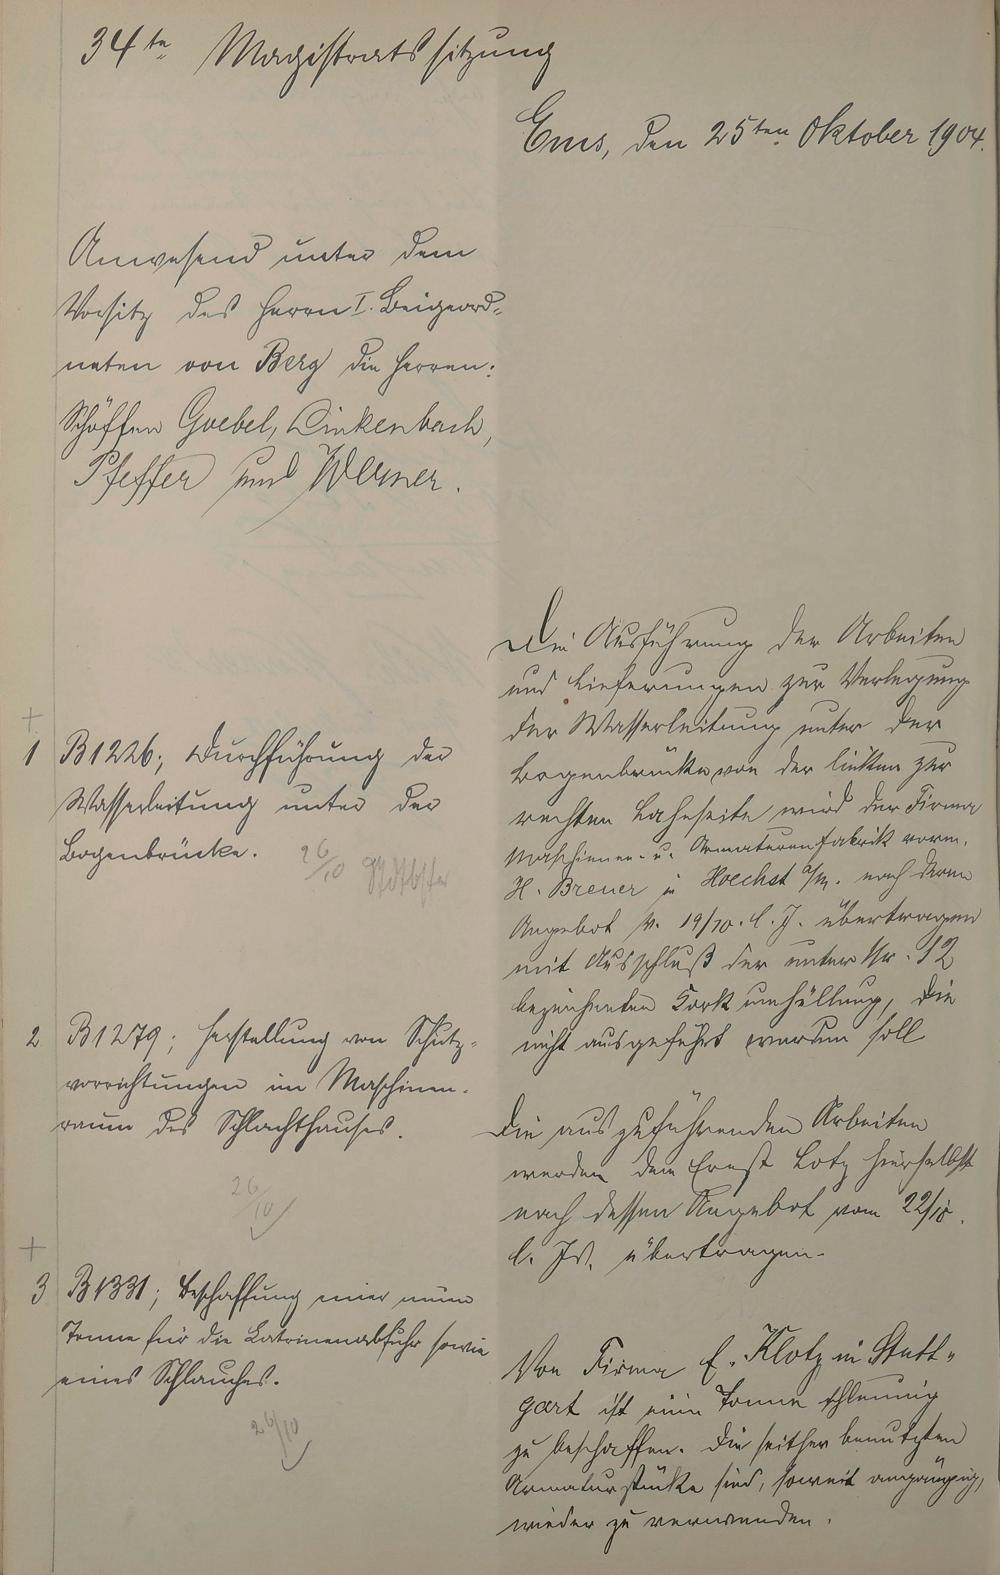 34te Magistratssitzung
Ems, den 25ten Oktober 1904.
Anwesend unter dem
Vorsitz des Herrn I. Beigeord-
neten von Berg die Herren:
Schöffen Goebel, Linkenbach,
Pfeffer und Werner.
1 B1226; Durchführung der
Wasserleitung unter der
Bogenbrücke.
26/10
Die Ausführung der Arbeiten
und Lieferungen zur Verlegung
der Wasserleitung unter der
Bogenbrücke von der linken zur
rechten Lahnseite wird der Firma
Maschinen- u. Armaturenfabrik vorm.
H. Breuer in Hoechst a/M. nach deren
Angebot v. 19/10. l. J. übertragen
mit Ausschluß der unter Nr. 12
bezeichneten Korkumhüllung, die
nicht ausgeführt werden soll
2 B1279; Herstellung von Schutz-
vorrichtungen im Maschinen-
raum des Schlachthauses.
26/10
Die auszuführenden Arbeiten
werden dem Ernst Lotz hierselbst
nach dessen Angebot vom 22/10.
l. Js. übertragen.
3 B1331; Beschaffung einer neuen
Tonne für die Latrinenabfuhr sowie
eines Schlauches.
26/10
Von Firma E. Klotz in Stutt-
gart ist eine Tonne schleunig
zu beschaffen. Die seither benutzten
Armaturstücke sind, soweit angängig,
wieder zu verwenden.